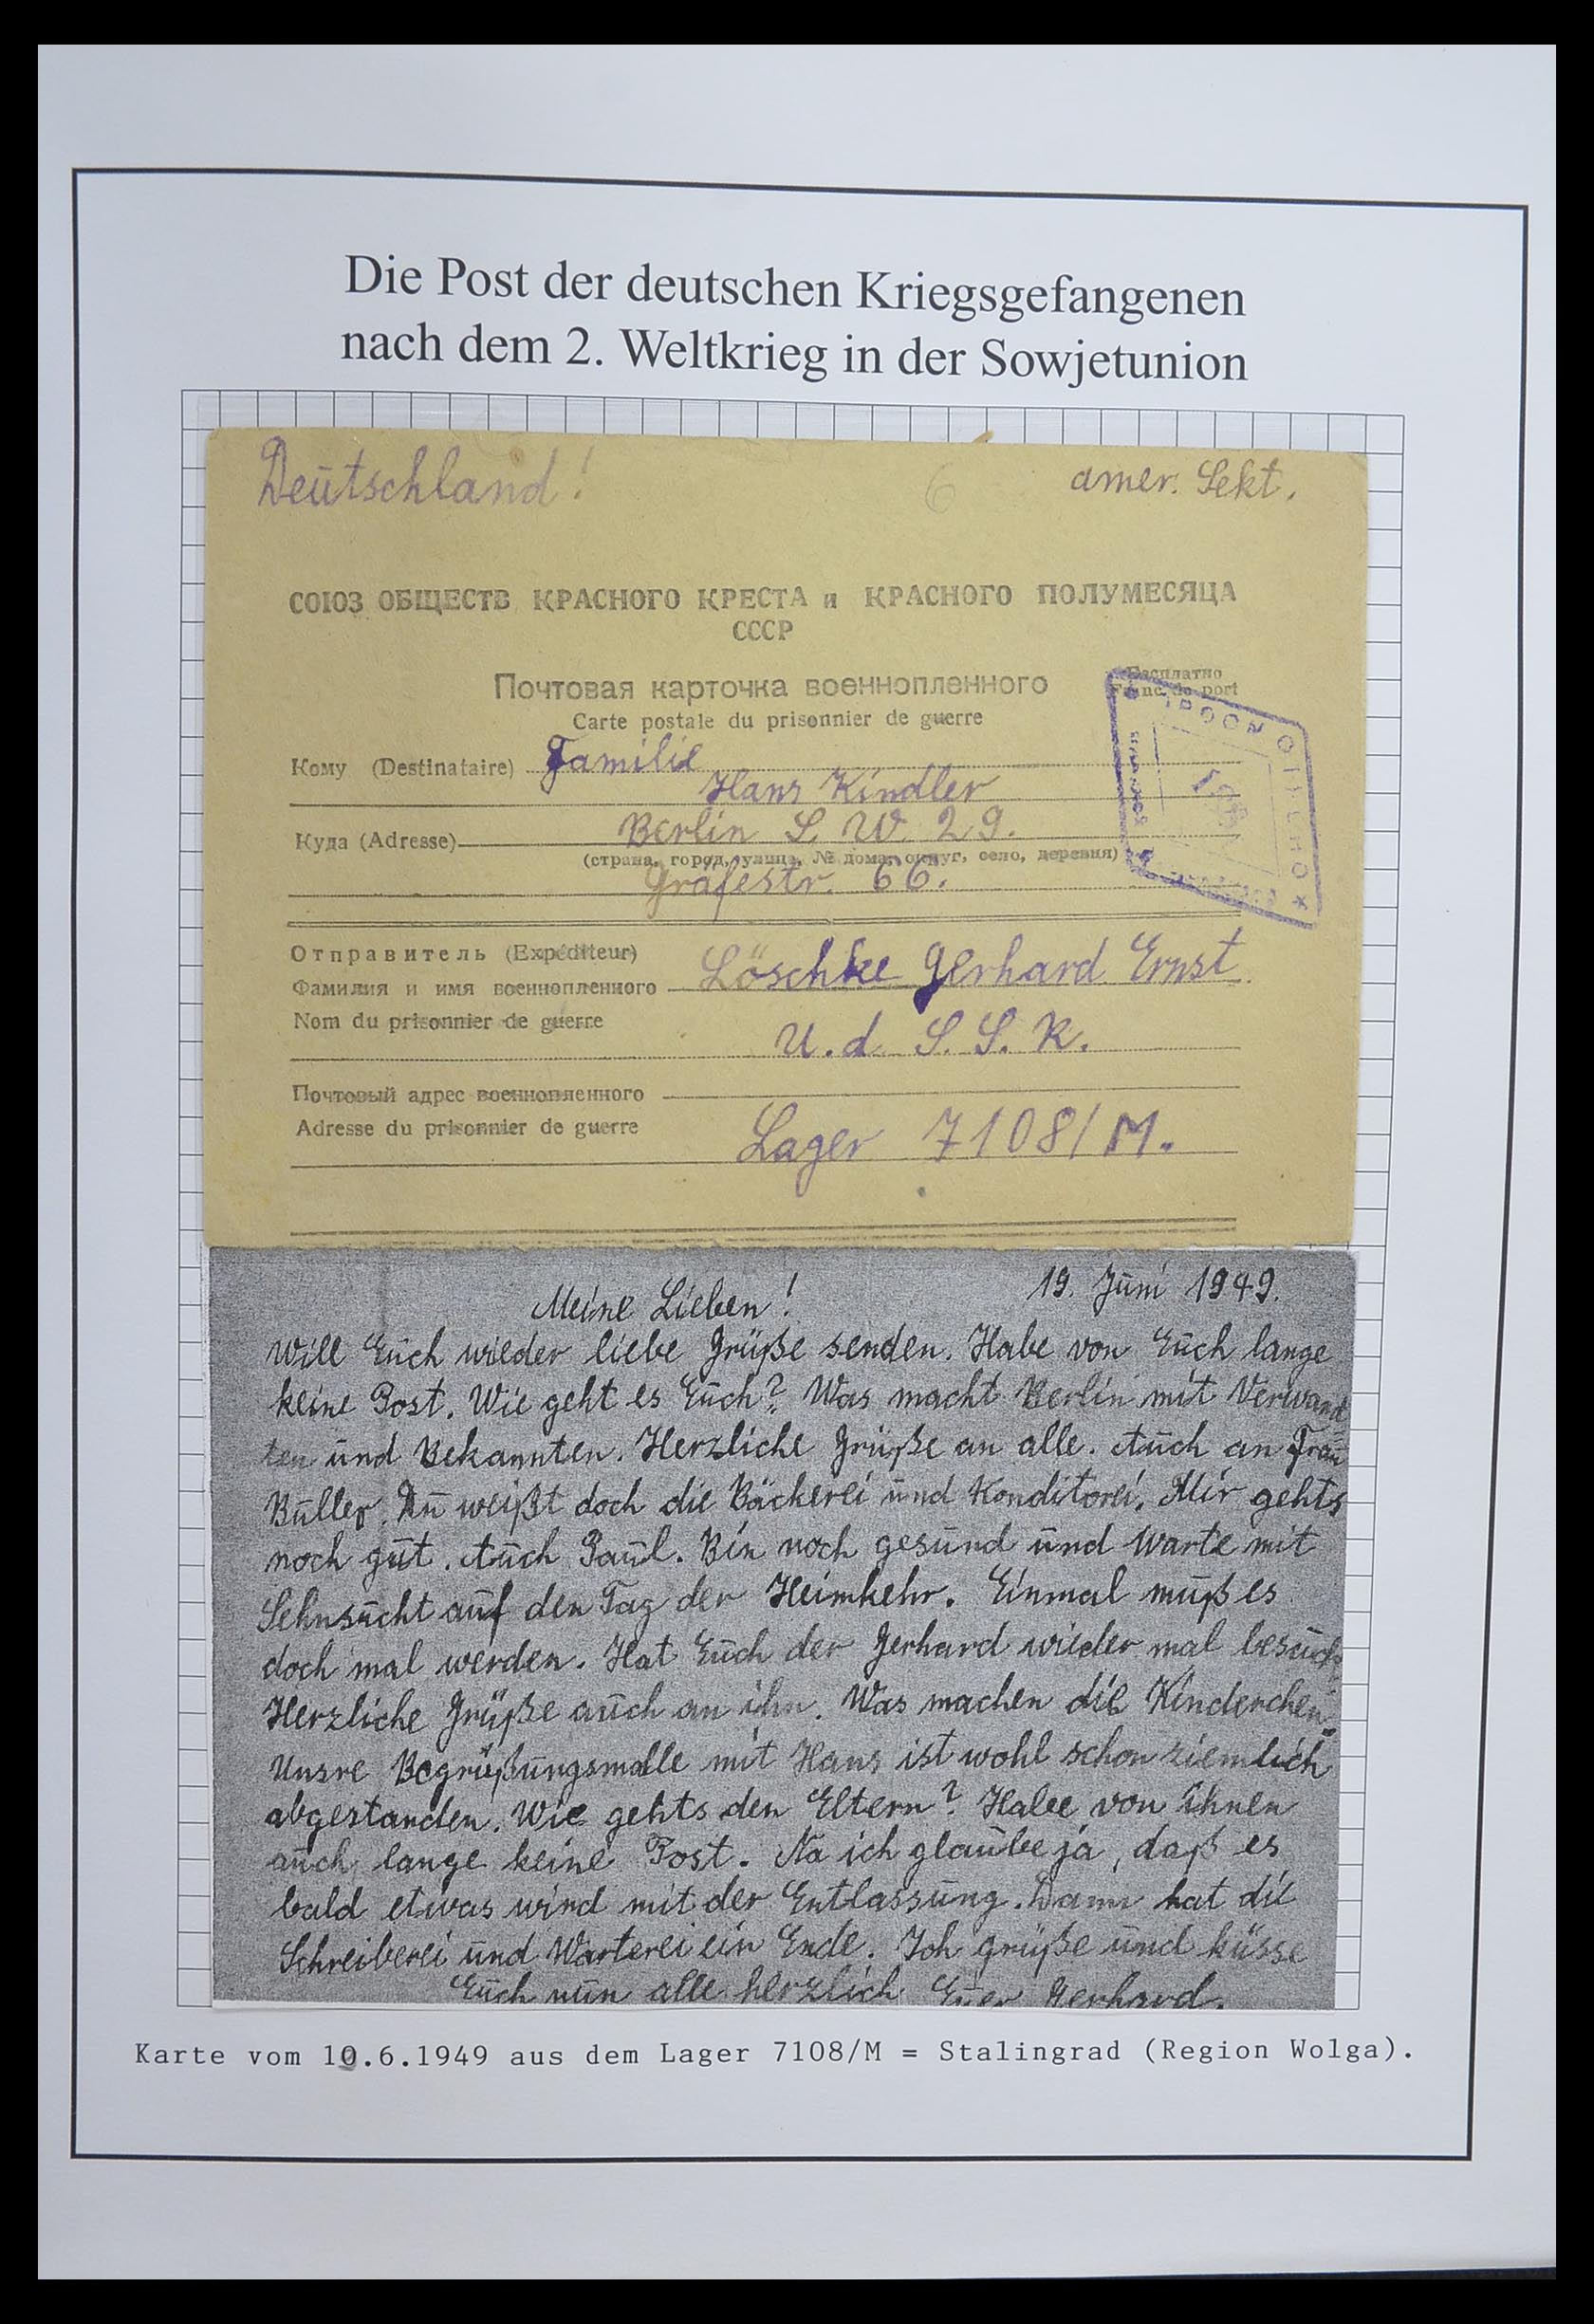 Die Post der deutschen Kriegsgefangenen
nach dem 2. Weltkrieg in der Sowjetunion
Deutschland!
6
amer. Sekt.
СОЮЗ ОБЩЕСТВ КРАСНОГО КРЕСТА и КРАСНОГО ПОЛУМЕСЯЦА
СССР
Почтовая карточка военнопленного
Бесплатно
Franc de port
Carte postale du prisonnier de guerre
Кому (Destinataire) Familie
Hans Kindler
Куда (Adresse) Berlin S. W. 29.
(страна, город, улица, № дома, округ, село, деревня)
Gräfestr. 66.
Отправитель (Expéditeur)
Фамилия и имя военнопленного Löschke Gerhard Ernst
Nom du prisonnier de guerre
U. d. S. S. R.
Почтовый адрес военнопленного
Adresse du prisonnier de guerre
Lager 7108/M.
19. Juni 1949.
Meine Lieben!
Will Euch wieder liebe Grüße senden. Habe von Euch lange
keine Post. Wie geht es Euch? Was macht Berlin mit Verwand
ten und Bekannten. Herzliche Grüße an alle. Auch an Frau
Buller. Du weißt doch die Bäckerei und Konditorei. Mir gehts
noch gut. Auch Paul. Bin noch gesund und warte mit
Sehnsucht auf den Tag der Heimkehr. Einmal muß es
doch mal werden. Hat Euch der Gerhard wieder mal besucht
Herzliche Grüße auch an ihn. Was machen die Kinderchen
Unsre Begrüßungsmolle mit Hans ist wohl schon ziemlich
abgestanden. Wie gehts den Eltern? Habe von ihnen
auch lange keine Post. Na ich glaube ja, daß es
bald etwas wird mit der Entlassung. Dann hat die
Schreiberei und Warterei ein Ende. Ich grüße und küsse
Euch nun alle herzlich Euer Gerhard.
Karte vom 10.6.1949 aus dem Lager 7108/M = Stalingrad (Region Wolga).